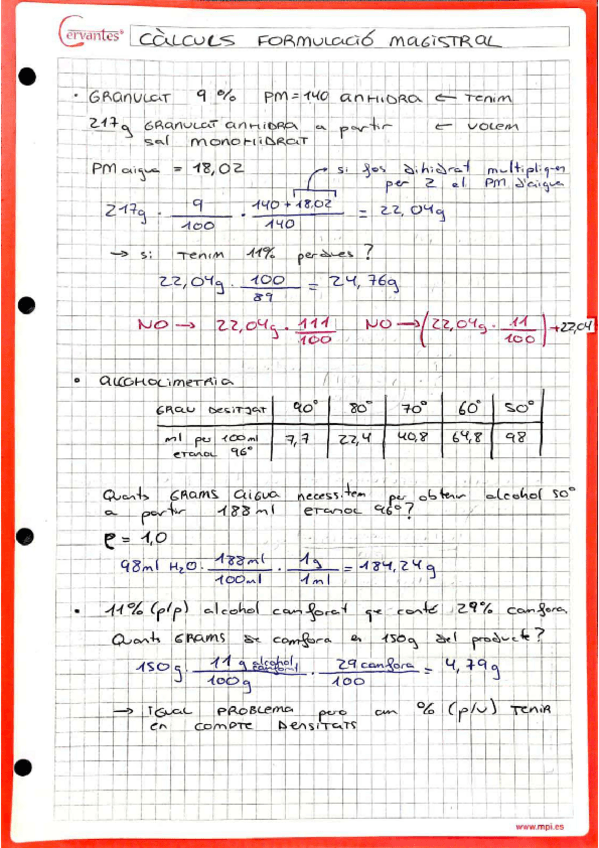 Cervantes®
CÀLCULS FORMULACIÓ MAGISTRAL
· GRANULAT 9 % PM = 140 ANHIDRA ← TENIM
217g GRANULAT ANHIDRA a partir ← VOLEM
sal MONOHIDRAT
PM aigua = 18,02
si fos dihidrat multipliques
per 2 el PM d'aigua
217g · 9/100 · (140 + 18,02)/140 = 22,04g
→ si TENIM 11% perdues?
22,04g · 100/89 = 24,76g
NO → 22,04g · 111/100 NO → (22,04g · 11/100) + 22,04
· ALCOHOLIMETRIA
GRAU DESITJAT 90° 80° 70° 60° 50°
ml per 100ml 7,7 22,4 40,8 64,8 98
etanol 96°
Quants GRAMS AIGUA necessitem per obtenir alcohol 50°
a partir 188ml etanol 96°?
ρ = 1,0
98ml H2O · 188ml/100ml · 1g/1ml = 184,24g
· 11% (p/p) alcohol canforat que conté 29% canfora
Quants GRAMS de camfora en 150g del producte?
150g · 11 g alcohol canforat/100g · 29 canfora/100 = 4,79g
→ IGUAL PROBLEMA pero amb % (p/v) TENIR
en COMPTE DENSITATS
www.mpi.es